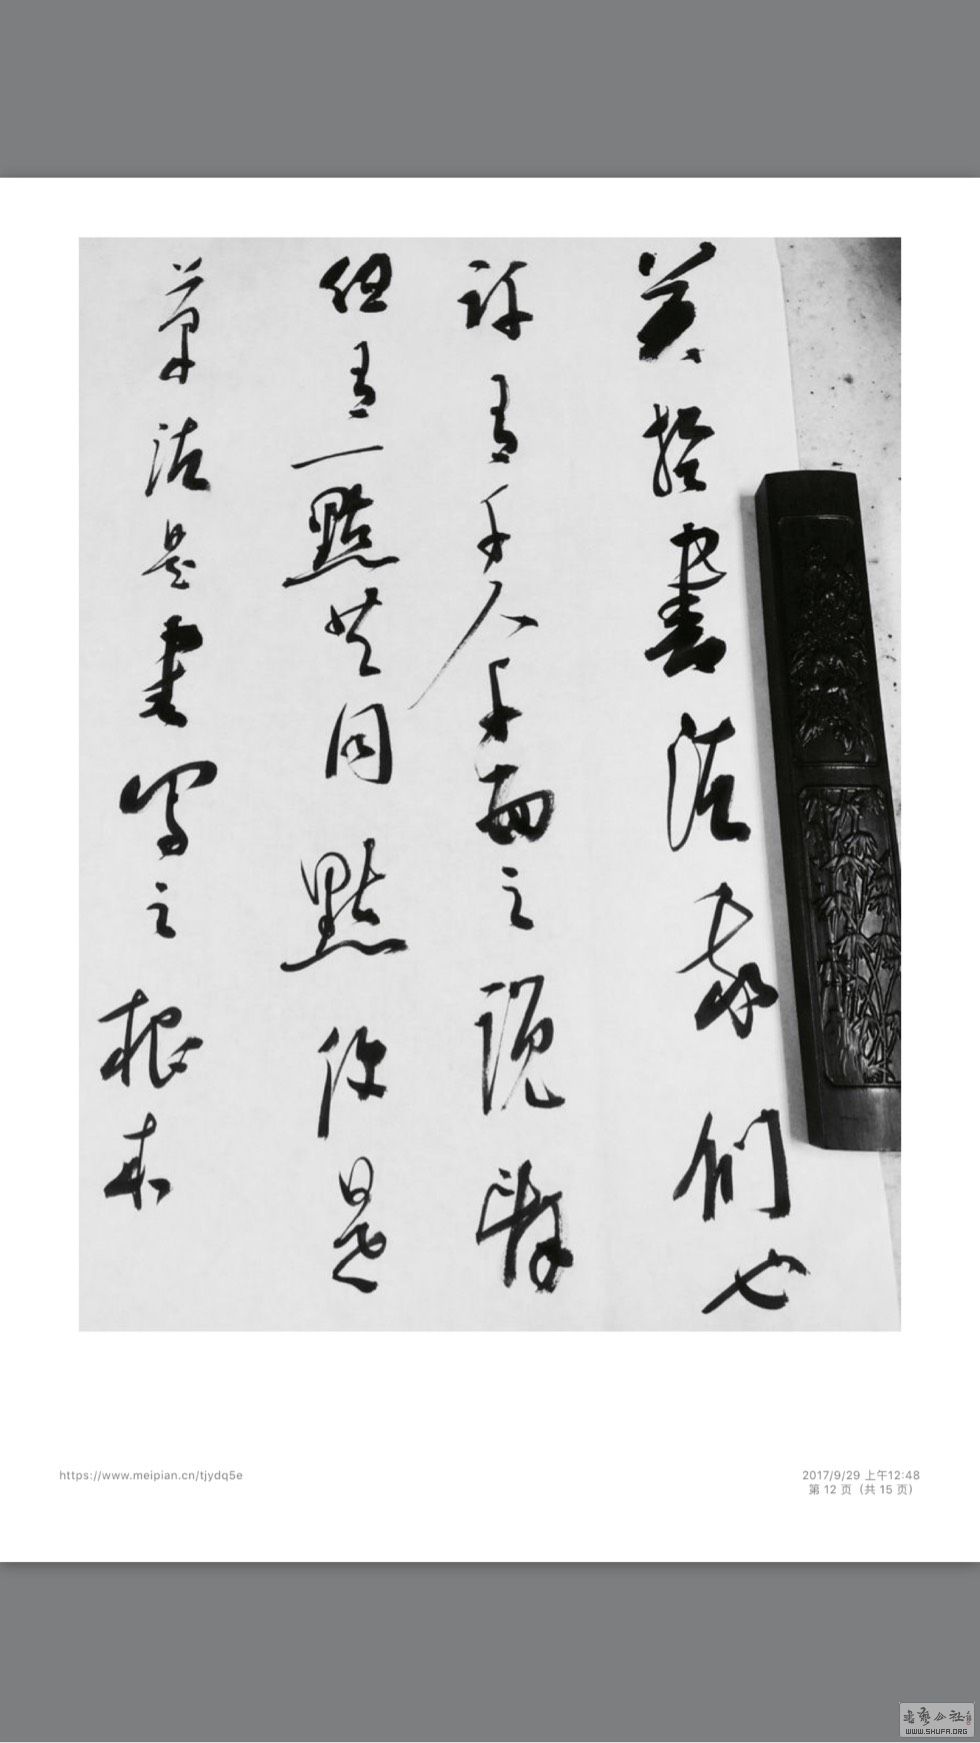 关於書法我們也
許有千人千面之説辭
但有一點共同點是
筆法是書寫之根本
https://www.meipian.cn/tjydq5e
2017/9/29 上午12:48
第 12 页（共 15 页）
WWW.SHUFA.ORG